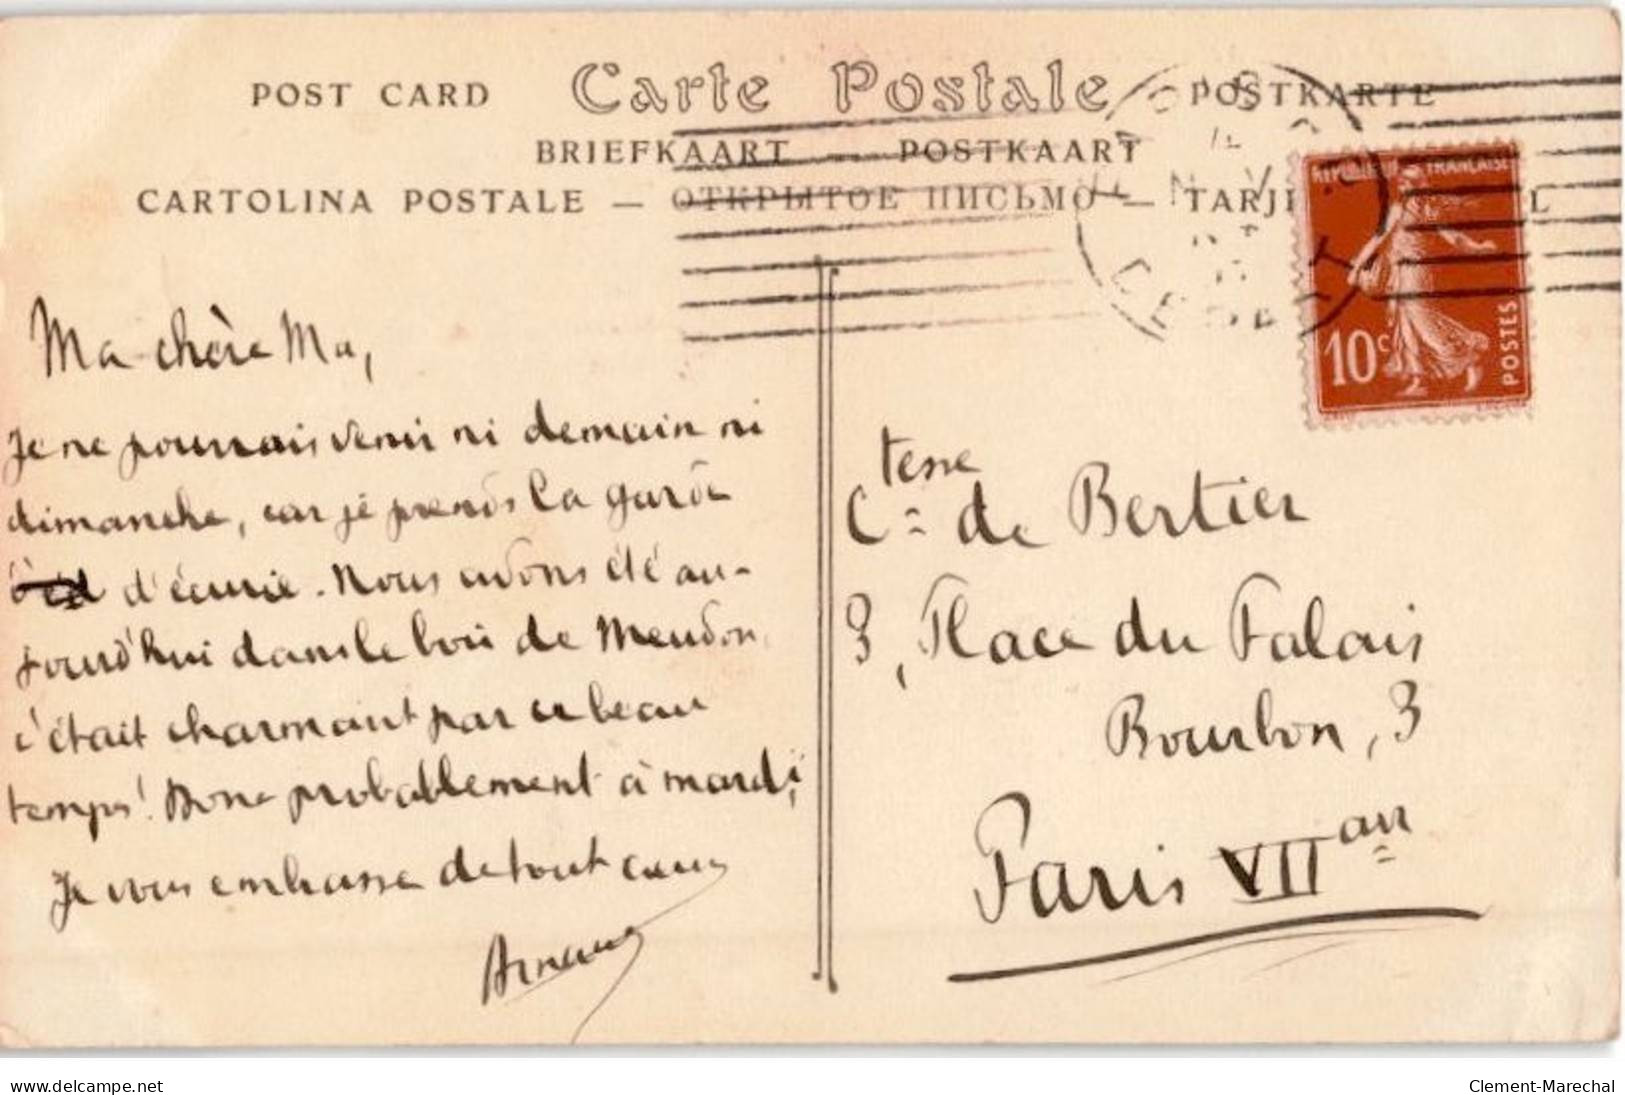 POST CARD Carte Postale POSTKARTE
BRIEFKAART — POSTKAART
CARTOLINA POSTALE — ОТКРЫТОЕ ПИСЬМО — TARJ L
REPUBLIQUE FRANÇAISE
10c POSTES
Ma chère Mu,
Je ne pourrais venir ni demain ni
dimanche, car je prends la garde
d'écurie. Nous avons été au-
jourd'hui dans le bois de Meudon,
c'était charmant par ce beau
temps! Donc probablement à mardi;
Je vous embrasse de tout cœur
Ctesse de Bertier
3, Place du Palais
Bourbon, 3
Paris VII
www.delcampe.net
Clement-Marechal